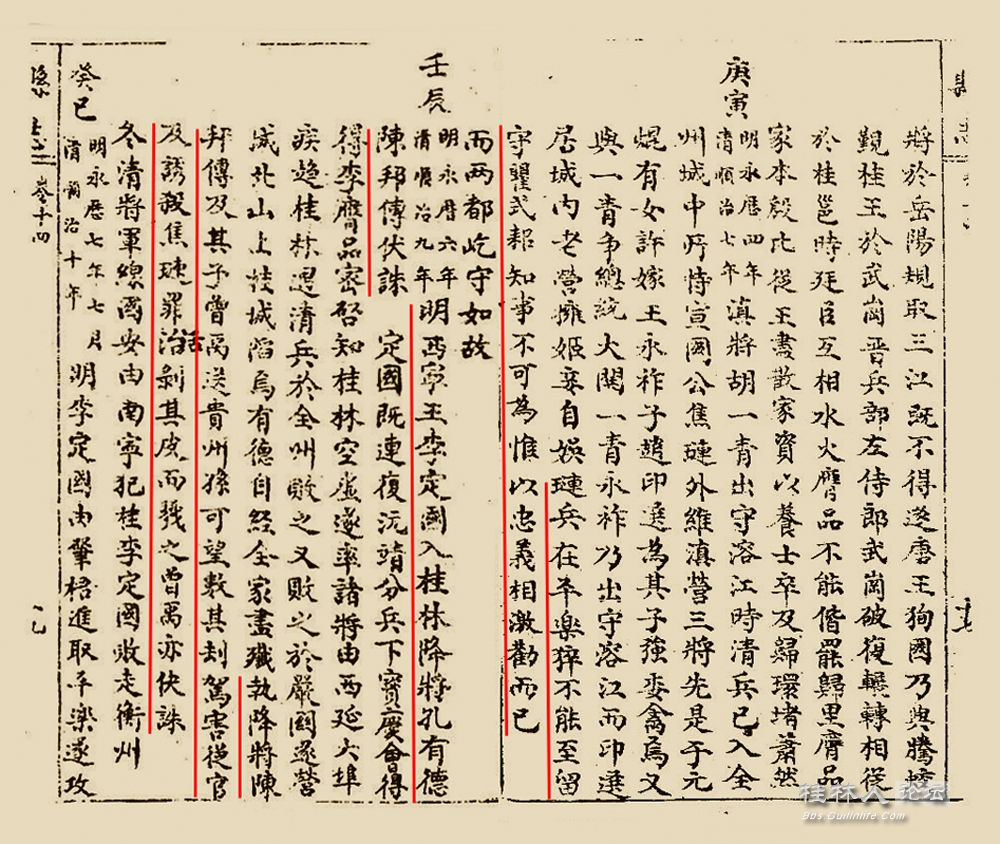 將於岳陽規取三江既不得遂唐王狥國乃與騰蛟
覲桂王於武崗晉兵部左侍郎武崗破復輾轉相從
於桂邕時廷臣互相水火膺品不能偕罷歸里膺品
家本殷比從王盡散家資以養士卒及歸環堵蕭然
庚寅
明永曆四年
清順治七年
滇將胡一青出守溶江時清兵已入全
州城中所恃宣國公焦璉外維滇營三將先是于元
焜有女許嫁王永祚子趙印選為其子強委禽焉又
與一青爭總統大鬨一青永祚乃出守溶江而印選
居城內老營擁姬妾自娛璉兵在平樂猝不能至留
守瞿式耜知事不可為惟以忠義相激勸而已
而两都屹守如故
壬辰
明永曆六年
清順治九年
明西寧王李定國入桂林降將孔有德
陳邦傅伏誅 定國既連復沅靖分兵下寳慶會得
得李膺品密啓知桂林空虛遂率諸將由西延大埠
疾趋桂林遇清兵於全州敗之又敗之於嚴關遂營
城北山上桂城陷焉有德自經全家盡殲執降將陳
邦傅及其子曾禹送貴州孫可望數其刦駕害從官
及誘殺焦璉罪治剥其皮而戮之曾禹亦伏誅
活
冬清將軍線國安由南寧犯桂李定國敗走衡州
癸巳
明永曆七年七月
清順治十年
明李定國由肇梧進取平樂遂攻
卷十四
桂林人论坛
Bbs.Guilinlife.Com